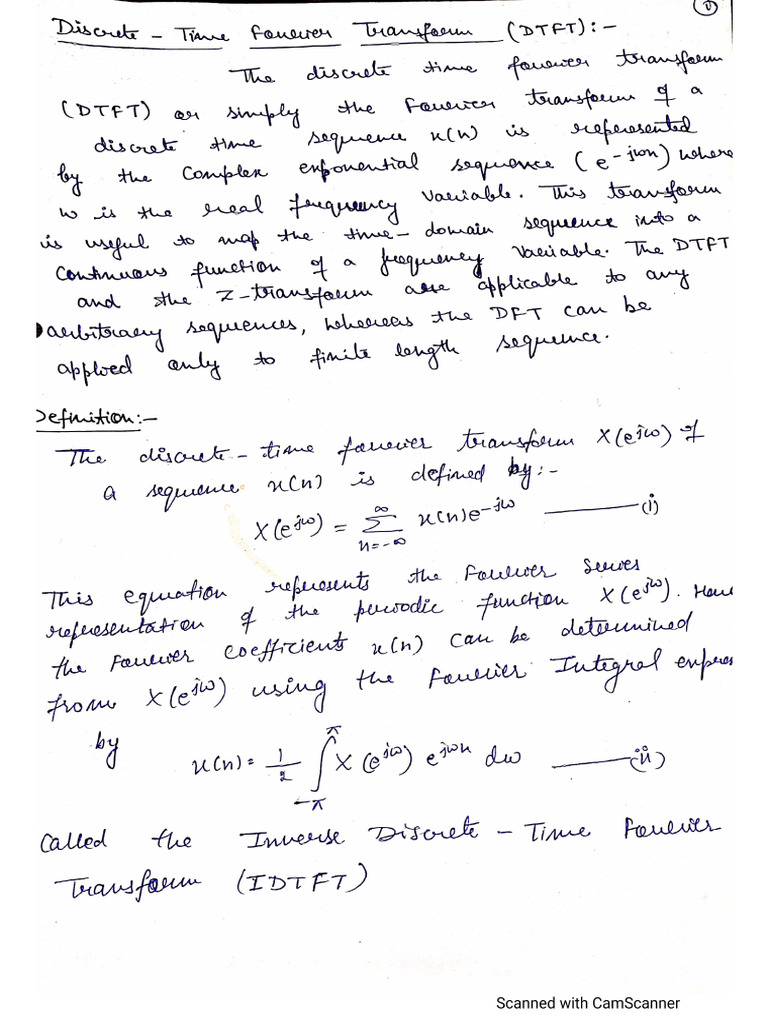 ①
Discrete - Time Fourier Transform (DTFT):-
The discrete time fourier transform
(DTFT) or simply the Fourier transform of a
discrete time sequence x(n) is represented
by the complex exponential sequence (e^-jωn) where
ω is the real frequency variable. This transform
is useful to map the time-domain sequence into a
continuous function of a frequency variable. The DTFT
and the Z-transform are applicable to any
arbitrary sequences, whereas the DFT can be
applied only to finite length sequence.
Definition:-
The discrete-time fourier transform X(e^jω) of
a sequence x(n) is defined by:-
X(e^jω) = ∑_{n=-∞}^{∞} x(n)e^-jω ——— (i)
This equation represents the Fourier Series
representation of the periodic function X(e^jω). Hence
the Fourier coefficients x(n) can be determined
from X(e^jω) using the Fourier Integral expres
by
x(n) = 1/2 ∫_{-π}^{π} X(e^jω) e^jωn dω ——— (ii)
Called the Inverse Discrete - Time Fourier
Transform (IDTFT)
Scanned with CamScanner